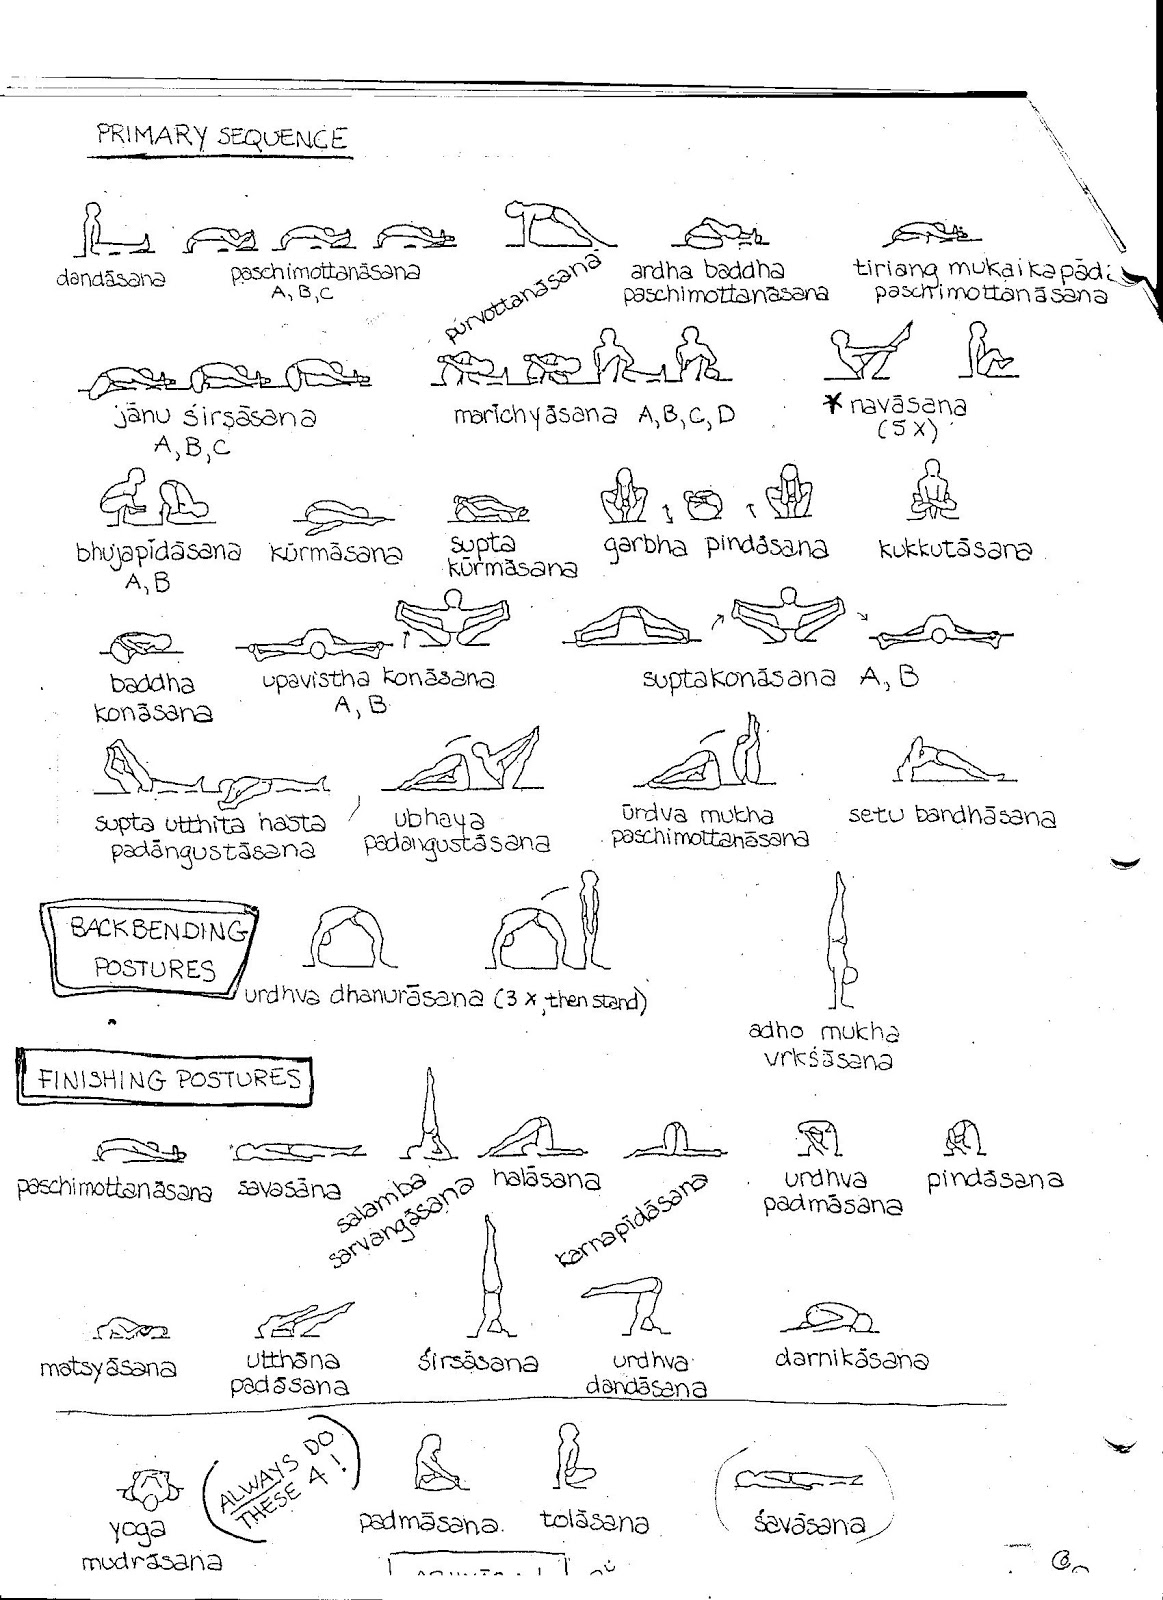 PRIMARY SEQUENCE
dandāsana
paschimottanāsana
A, B, C
pūrvottanāsana
ardha baddha
paschimottanāsana
tiriang mukaikapādi
paschimottanāsana
jānu śirṣāsana
A, B, C
marīchyāsana A, B, C, D
* navāsana
(5 X)
bhujapīdāsana
A, B
kūrmāsana
supta
kūrmāsana
garbha pindāsana
kukkutāsana
baddha
konāsana
upavistha konāsana
A, B
supta konāsana A, B
supta utthita hasta
padāngustāsana
ubhaya
padangustāsana
ūrdva mukha
paschimottanāsana
setu bandhāsana
BACKBENDING
POSTURES
urdhva dhanurāsana (3 x, then stand)
adho mukha
vrkśāsana
FINISHING POSTURES
paschimottanāsana
savasāna
salamba
sarvangāsana
halāsana
karnapīdāsana
urdhva
padmāsana
pindāsana
matsyāsana
utthāna
padāsana
śirsāsana
urdhva
dandāsana
darnikāsana
yoga
mudrāsana
ALWAYS DO
THESE 4!
padmāsana
tolāsana
śavāsana